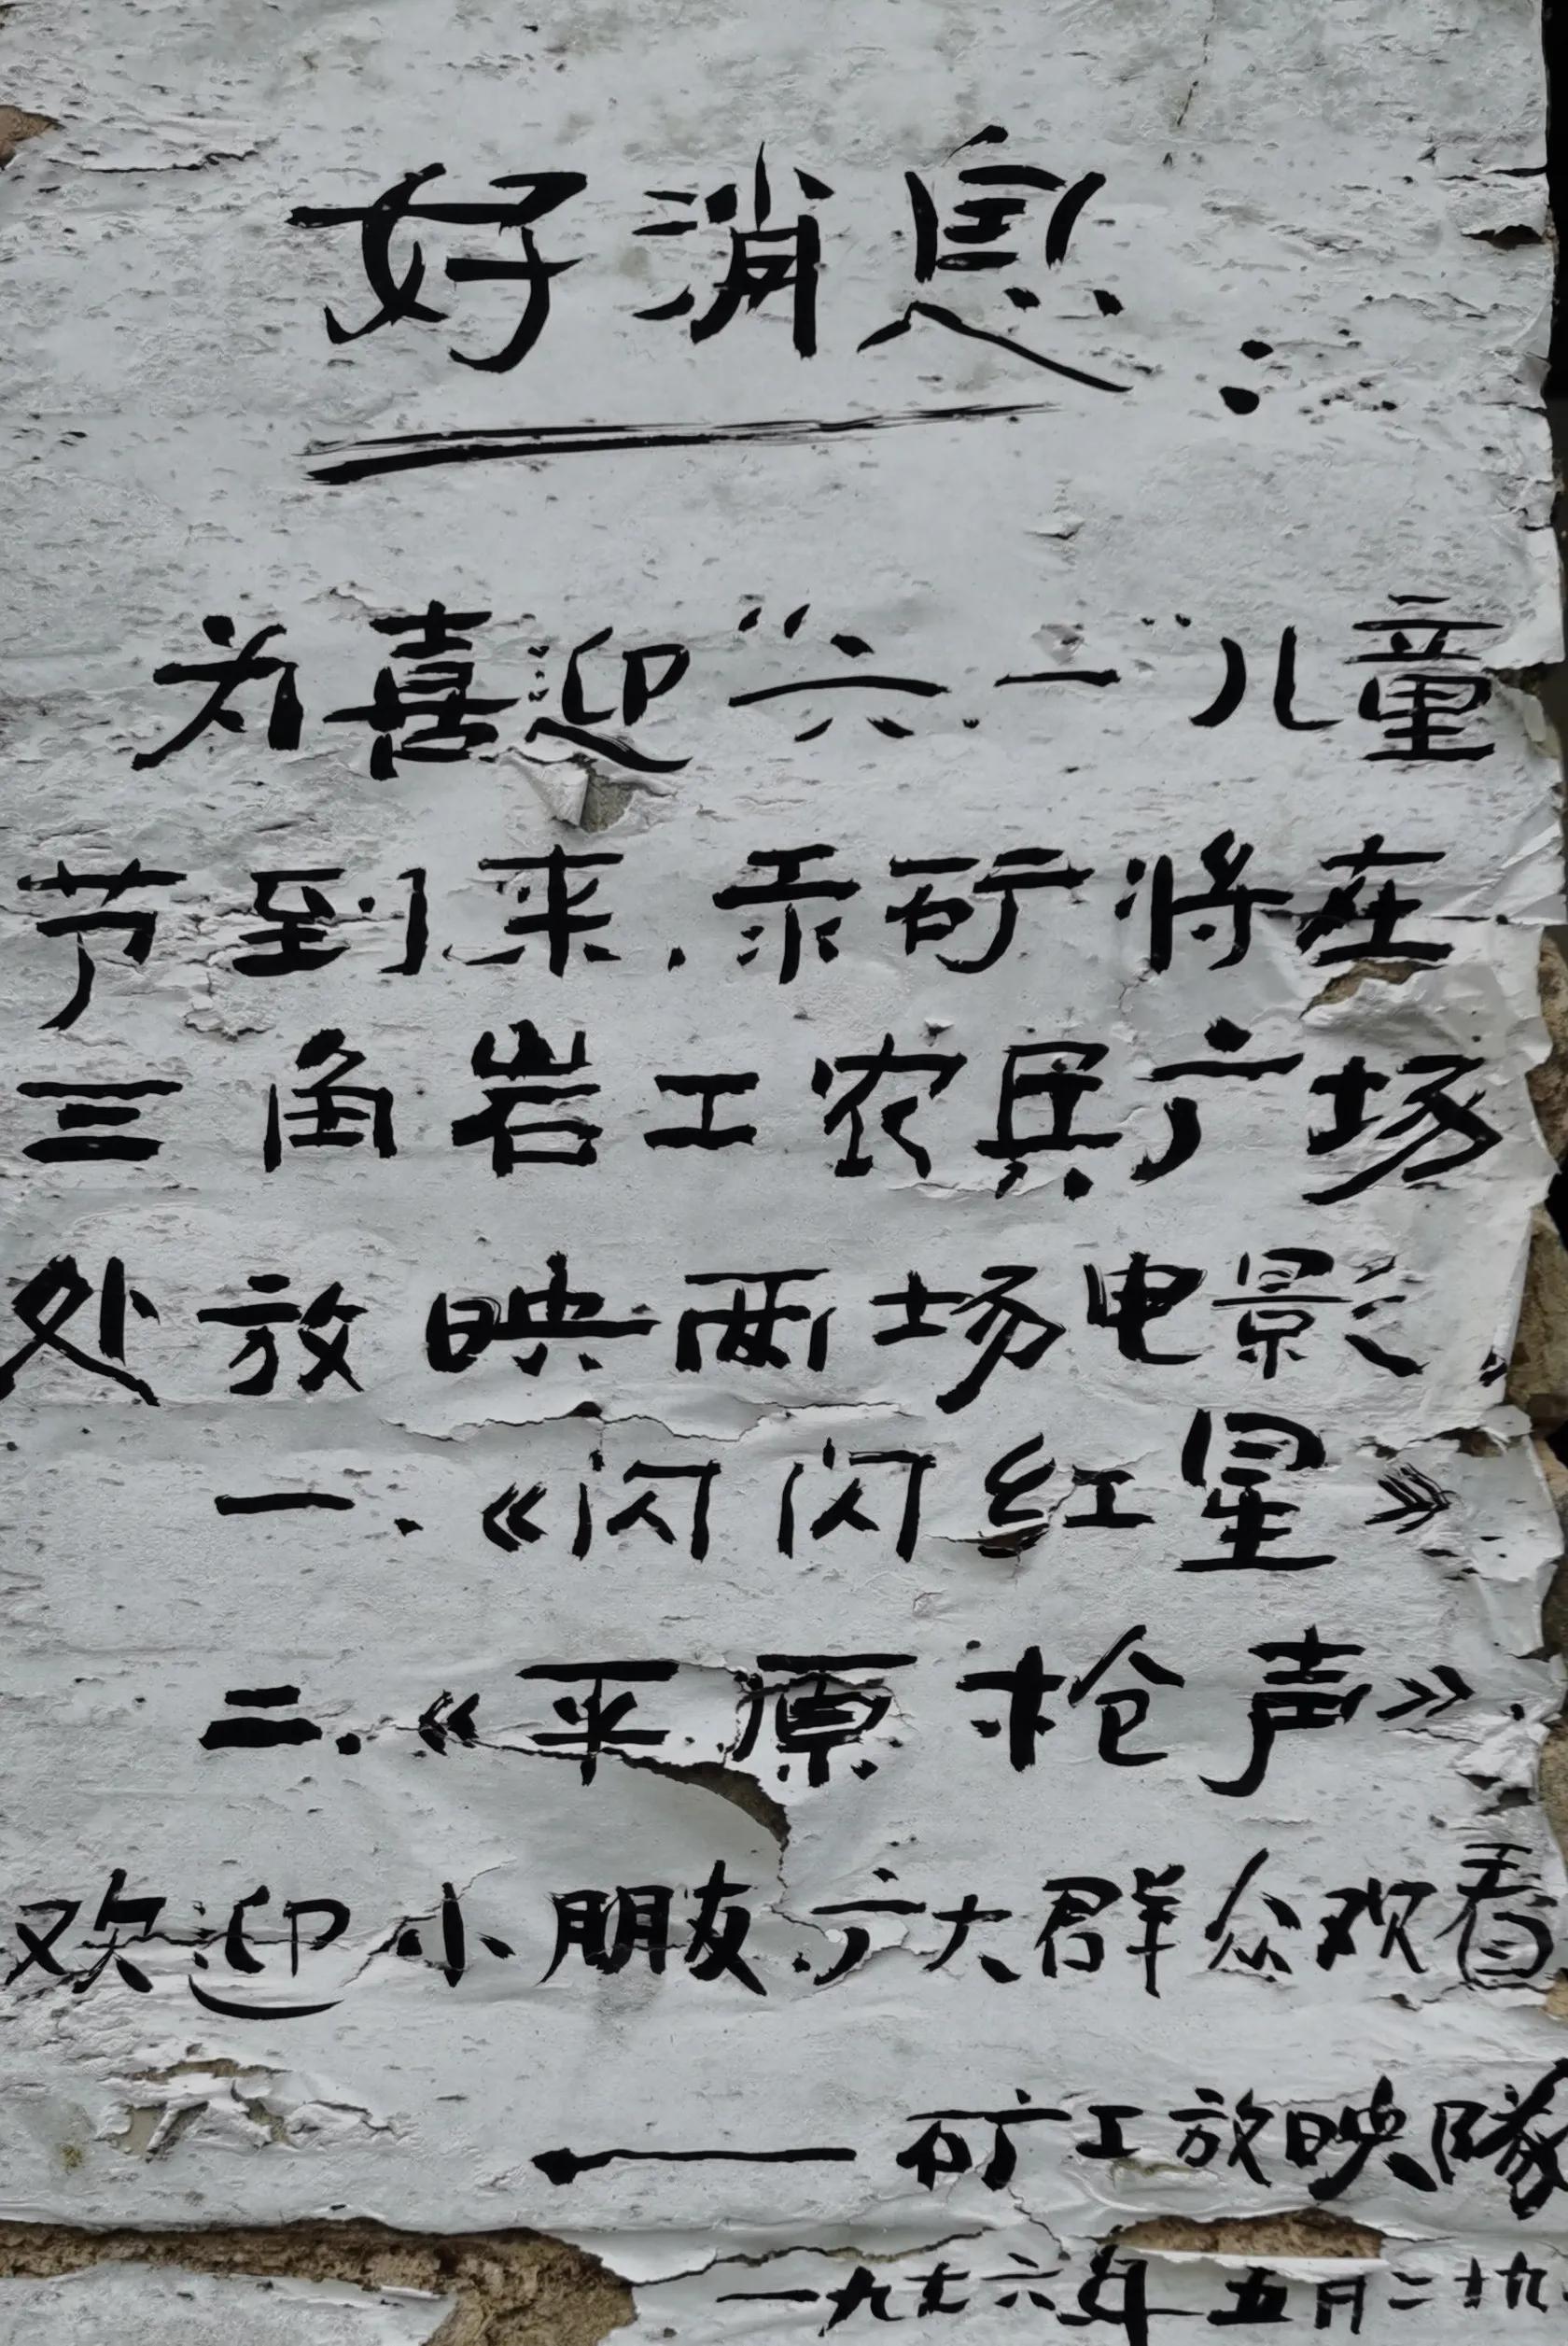 好消息：
为喜迎“六.一”儿童
节到来.汞矿将在
三角岩工农兵广场
处放映两场电影.
一.《闪闪红星》
二.《平原枪声》.
欢迎小朋友.广大群众欢看
——矿工放映隊
一九七六年五月二十九